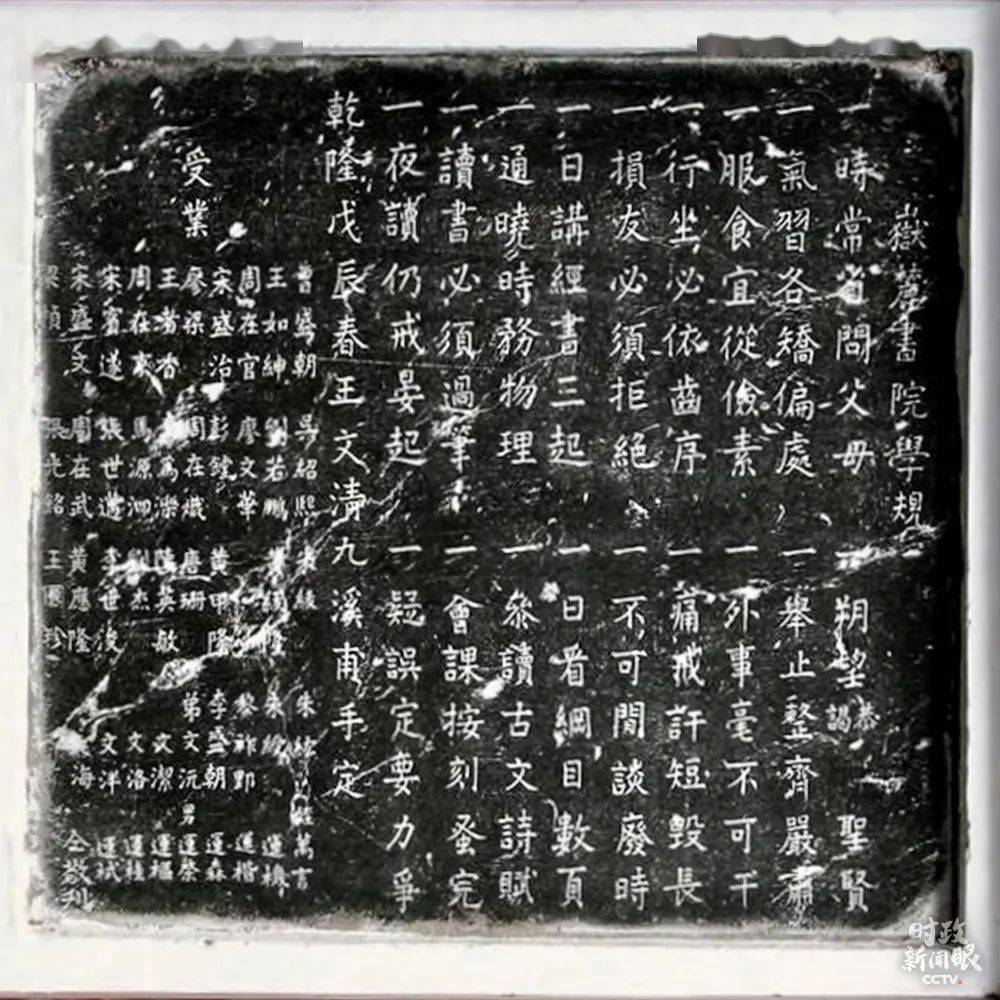 嶽麓書院學規
一時常省問父母 一朔望恭謁聖賢
一氣習各矯偏處 一舉止整齊嚴肅
一服食宜從儉素 一外事毫不可干
一行坐必依齒序 一痛戒訐短毀長
一損友必須拒絕 一不可閒談廢時
一日講經書三起 一日看綱目數頁
一通曉時務物理 一參讀古文詩賦
一讀書必須過筆 一會課按刻蚤完
一夜讀仍戒晏起 一疑誤定要力爭
乾隆戊辰春王文清九溪甫手定
受業
曾盛朝 吳紹熙
王如紳 劉若鵬
周在官 廖文華 黎祚郢 運楷
宋盛治 彭鋐 黃甲隆 李盛朝 運森
廖梁 周在熾 唐珊 弟文沅 男運榮
王者香 陳英敏 文潔 運福
周在 馬源泗 劉杰 文洛 運桂
宋賓遂 張世邁 李世俊 文洋 運栻
宋盛文 周在武 黃應隆 海 仝敬刊
梁楨 張光銘 王國珍
时政
新闻眼
CCTV.